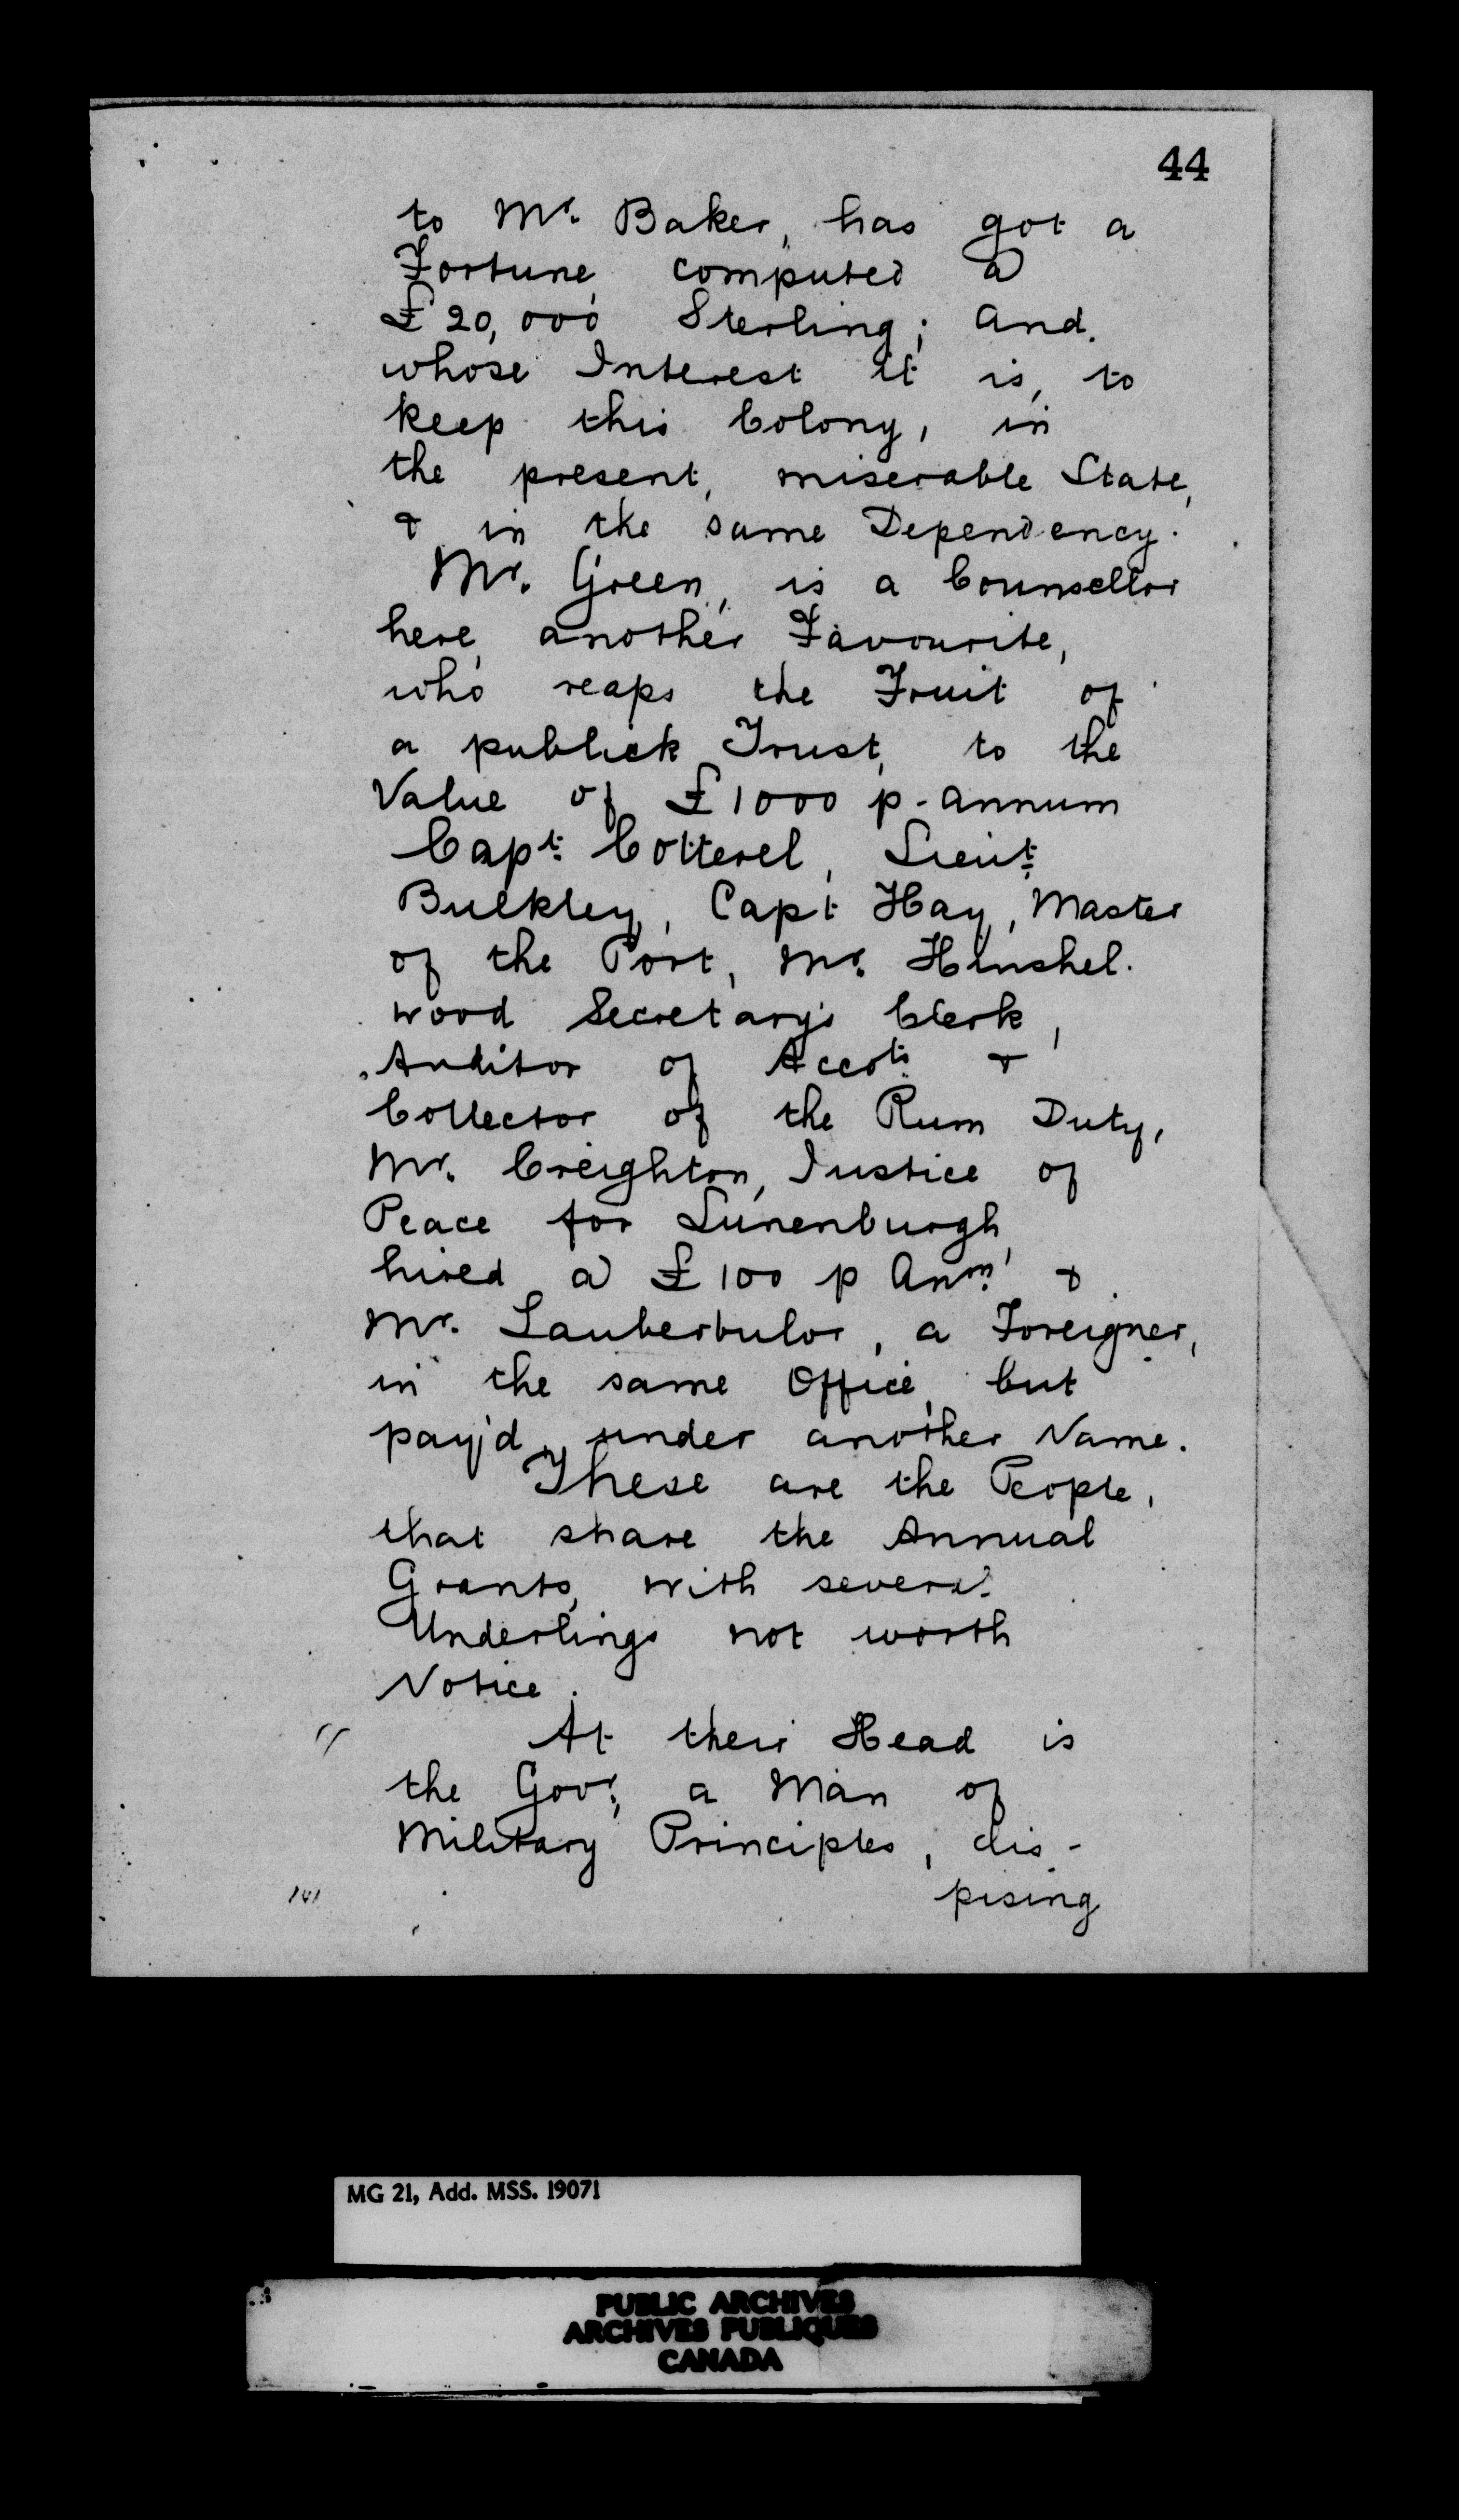 44
to Mr. Baker, has got a
Fortune, computed a
£20,000 Sterling; and.
whose Interest it is, to
keep this Colony, in
the present, miserable State,
& in the same Dependency.
Mr. Green, is a Counsellor
here, another Favourite,
who reaps the Fruit of
a publick Trust, to the
Value of £1000 p. annum
Capt. Cotterel, Lieut.
Bulkley, Capt Hay, Master
of the Port, Mr. Hinshel.
wood Secretary's Clerk,
Auditor of Accots. &
Collector of the Rum Duty,
Mr. Creighton, Justice of
Peace for Lunenburgh,
hired a £100 p Anm. &
Mr. Lauberbulor, a Foreigner,
in the same Office, but
pay'd, under another Name.
These are the People,
that share the Annual
Grants, with several
Underlings not worth
Notice.
" At their Head is
the Govr., a Man of
Military Principles, dis-
pising
MG 21, Add. MSS. 19071
PUBLIC ARCHIVES
ARCHIVES PUBLIQUES
CANADA